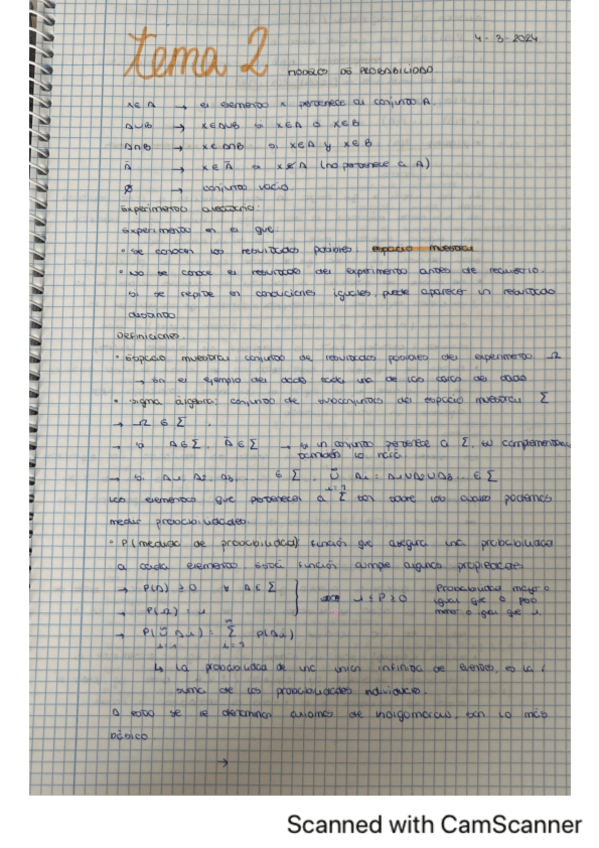 tema 2
4-3-2024
MODELOS DE PROBABILIDAD
x∈A → el elemento x pertenece al conjunto A.
A∪B → x∈A∪B si x∈A ó x∈B
A∩B → x∈A∩B si x∈A y x∈B
Ā → x∈Ā si x∉A (no pertenece a A)
∅ → conjunto vacío.
Experimento aleatorio:
Experimento en el que:
· Se conocen los resultados posibles. espacio muestral
· No se conoce el resultado del experimento antes de
Si se repite en condiciones iguales, puede aparecer un resultado
distinto
Definiciones.
· Espacio muestral: conjunto de resultados posibles del experimento Ω
→ En el ejemplo del dado cada una de las caras del dado
· Sigma álgebra: conjunto de subconjuntos del espacio muestral Σ
→ Ω ∈ Σ.
→ si A∈Σ, Ā∈Σ → si un conjunto pertenece a Σ, su complementario
también lo hará
→ si A1, A2, A3... ∈ Σ, ∪ Ai = A1∪A2∪A3... ∈ Σ
Los elementos que pertenecen a Σ son sobre los cuales podemos
medir probabilidades.
· P (medida de probabilidad) función que asegura una probabilidad
a cada elemento. Esta función cumple algunas propiedades
→ P(A) ≥ 0 ∀ A∈Σ
→ P(Ω) = 1
1 ≤ P ≥ 0
Probabilidad mayor o
igual que 0 pero
menor o igual que 1.
→ P(∪ Ai) = Σ P(Ai)
↳ La probabilidad de una unión infinita de eventos, es la
suma de las probabilidades individuales.
A esto se le denomina axiomas de, son lo más
básico.
→
Scanned with CamScanner